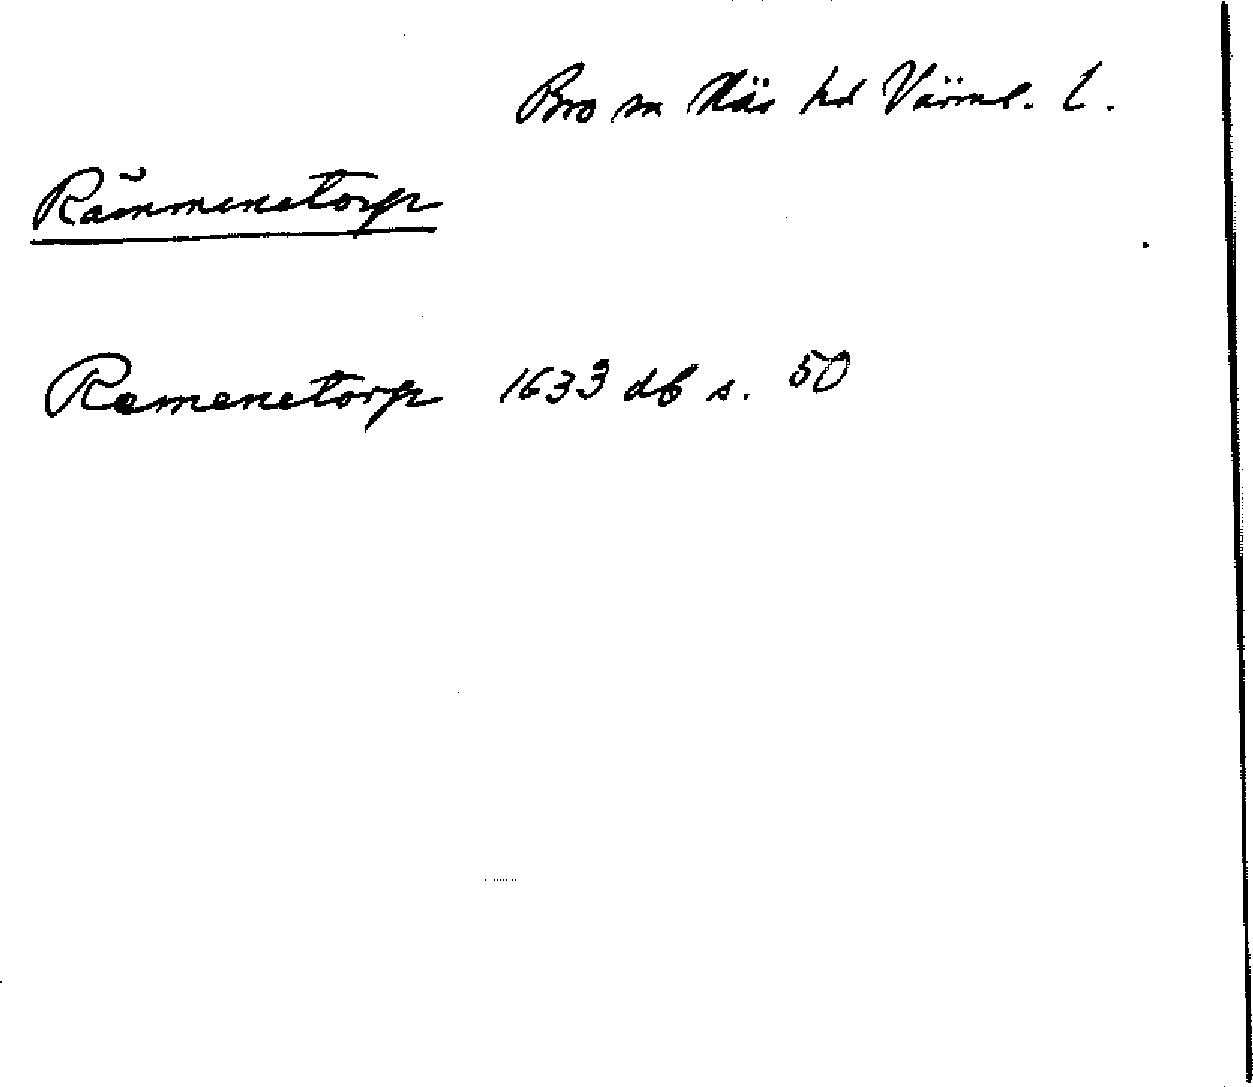 Bro sn Näs hd Värml. l.
Rämmenstorp
Remenstorp 1633 db s. 50